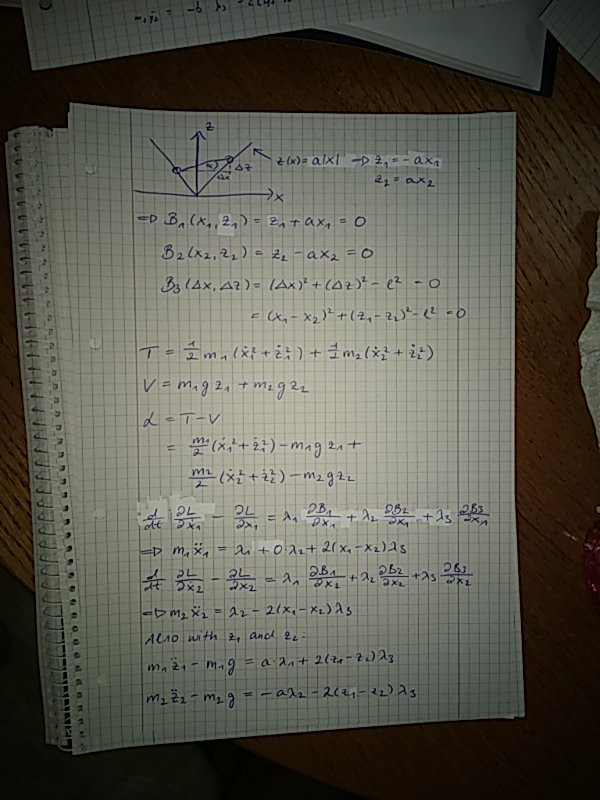 z
z(x) = a|x| → z₁ = -ax₁
z₂ = ax₂
Δz
Δx
x
⇒ B₁(x₁,z₁) = z₁ + ax₁ = 0
B₂(x₂,z₂) = z₂ - ax₂ = 0
B₃(Δx,Δz) = (Δx)² + (Δz)² - l² = 0
= (x₁-x₂)² + (z₁-z₂)² - l² = 0
T = 1/2 m₁(ẋ₁² + ż₁²) + 1/2 m₂(ẋ₂² + ż₂²)
V = m₁gz₁ + m₂gz₂
L = T-V
= m₁/2 (ẋ₁² + ż₁²) - m₁gz₁ +
m₂/2 (ẋ₂² + ż₂²) - m₂gz₂
d/dt ∂L/∂ẋ₁ - ∂L/∂x₁ = λ₁ ∂B₁/∂x₁ + λ₂ ∂B₂/∂x₁ + λ₃ ∂B₃/∂x₁
⇒ m₁ẍ₁ = λ₁ + 0·λ₂ + 2(x₁-x₂)λ₃
d/dt ∂L/∂ẋ₂ - ∂L/∂x₂ = λ₁ ∂B₁/∂x₂ + λ₂ ∂B₂/∂x₂ + λ₃ ∂B₃/∂x₂
⇒ m₂ẍ₂ = λ₂ - 2(x₁-x₂)λ₃
Also with z₁ and z₂:
m₁z̈₁ - m₁g = a·λ₁ + 2(z₁-z₂)λ₃
m₂z̈₂ - m₂g = -aλ₂ - 2(z₁-z₂)λ₃